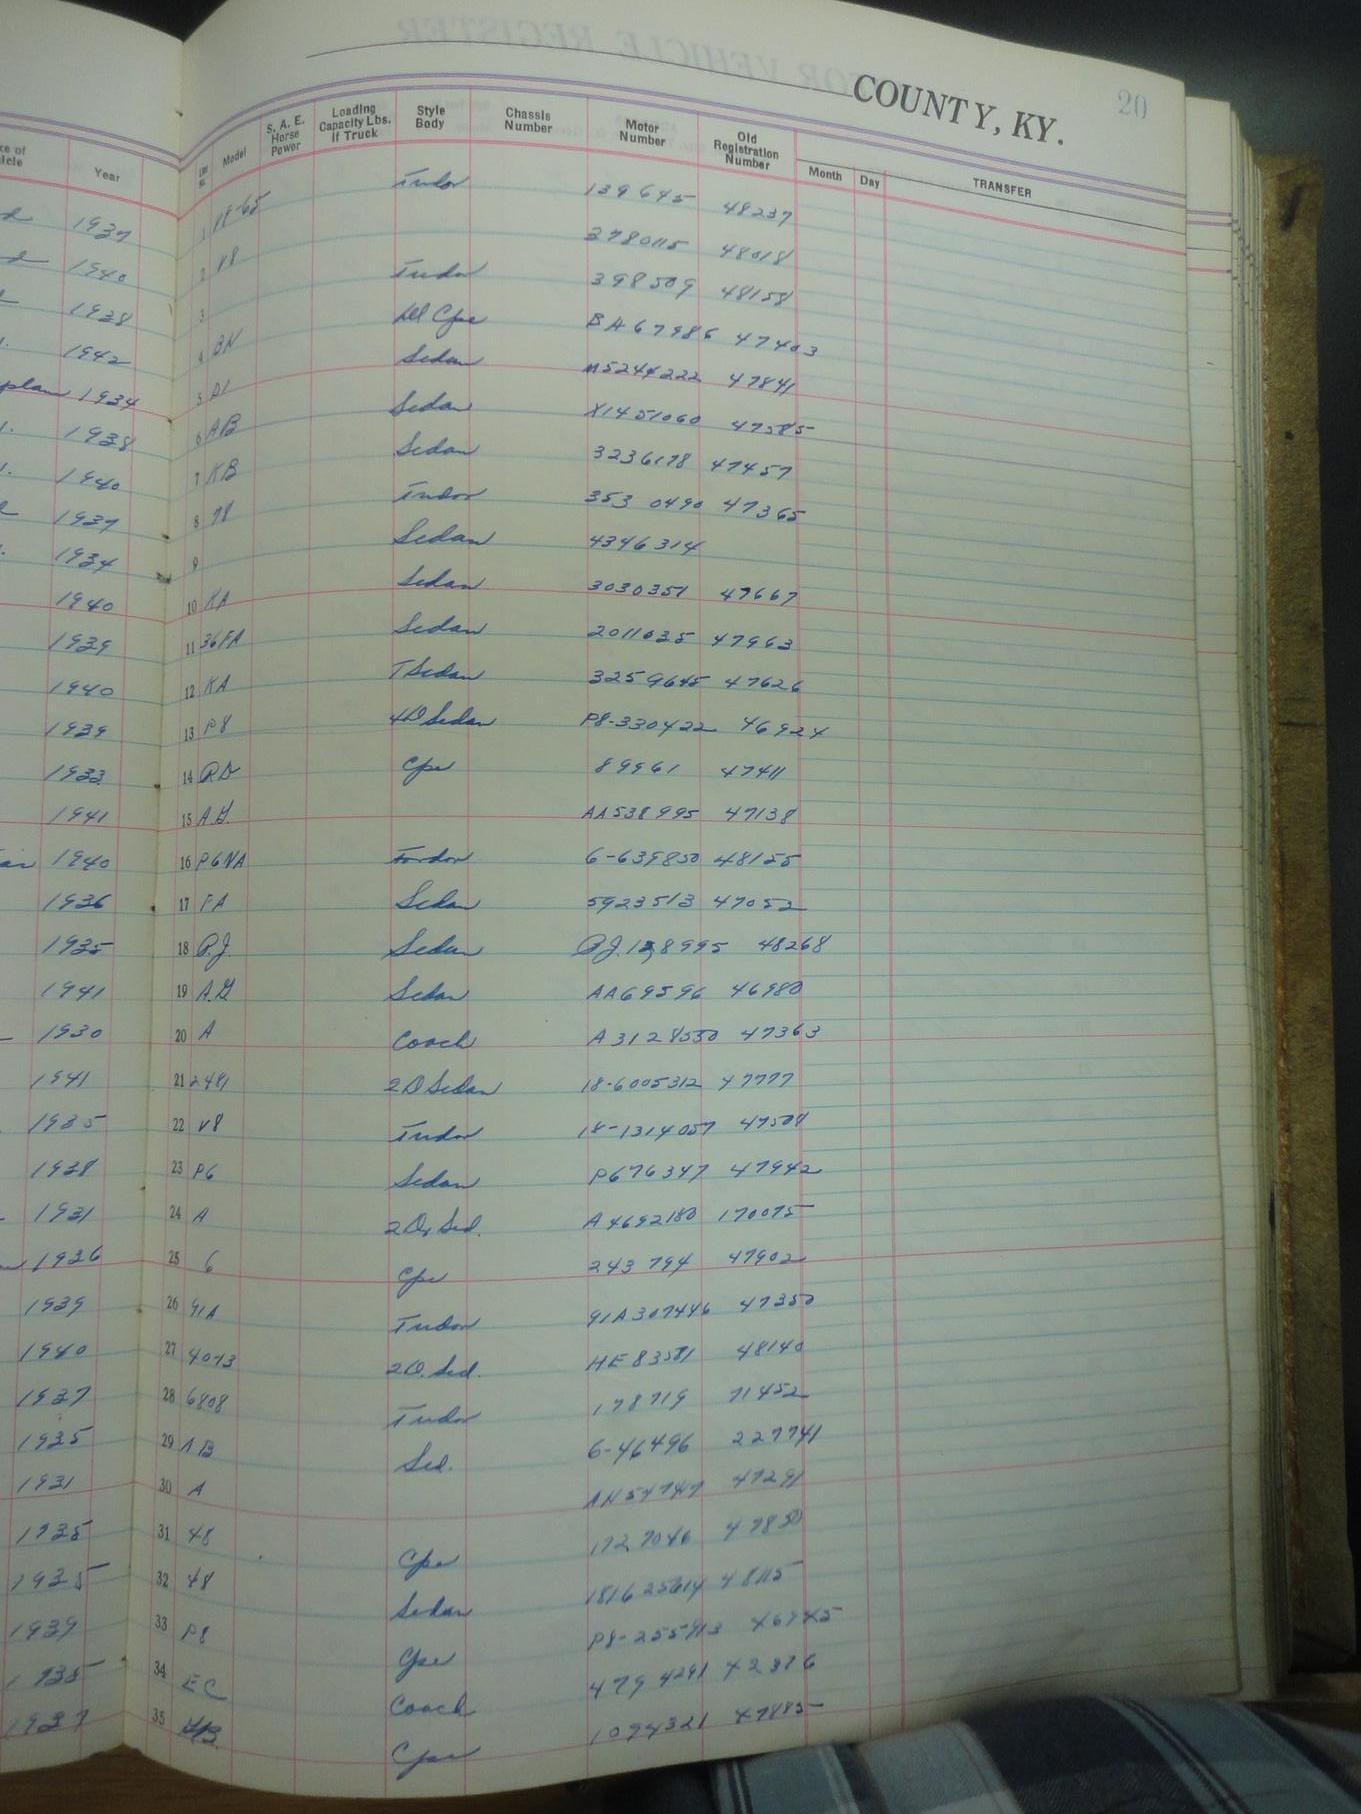 COUNTY, KY. 20
Year Line No. Model S. A. E. Horse Power Loading Capacity Lbs. if Truck Style Body Chassis Number Motor Number Old Registration Number Month Day TRANSFER
1937 1 V8-65 Tudor 139645 48237
1940 2 V8 48018
1938 3 Tudor 398509 48158
1942 4 BH Del Cpe BA67986 47403
1934 5 Sedan M5244222 47841
1938 6 AB Sedan X1451060 47585
1940 7 KB Sedan 3236178 47457
1937 8 78 Tudor 353 0490 47365
1934 9 Sedan 4346314
1940 10 KA Sedan 3030351 47667
1939 11 36FA Sedan 2011035 47963
1940 12 KA T Sedan 3259645 47626
1939 13 P8 4D Sedan P8-330422 46924
1933 14 Cpe 89961 47411
1941 15 A.G. AA538995 47138
1940 16 P6NA Fordor 6-639850 48155
1936 17 FA Sedan 5923513 47052
1935 18 P.J. Sedan 48268
1941 19 A.G Sedan AA69596 46980
1930 20 A Coach A3128550 47363
1941 21 2481 2D Sedan 18-6005312 47777
1935 22 V8 Tudor 18-1314057 47508
1938 23 P6 Sedan P676347 47942
1931 24 A 2Dr Sed. A4692180 170075
1936 25 6 Cpe 243794 47902
1939 26 91A Tudor 91A307446 47350
1940 27 4073 2D. Sed. HE83581 48140
1937 28 6808 Tudor 178719 71452
1935 29 AB Sed. 6-46496 227741
1931 30 A AN54747 47291
1935 31 48 Cpe 1727046 47850
1935 32 48 Sedan 181625614 48115
1939 33 P8 Cpe P8-255913
1935 34 EC Coach 479 4291 42376
1937 35 Cpe 1094321 47885